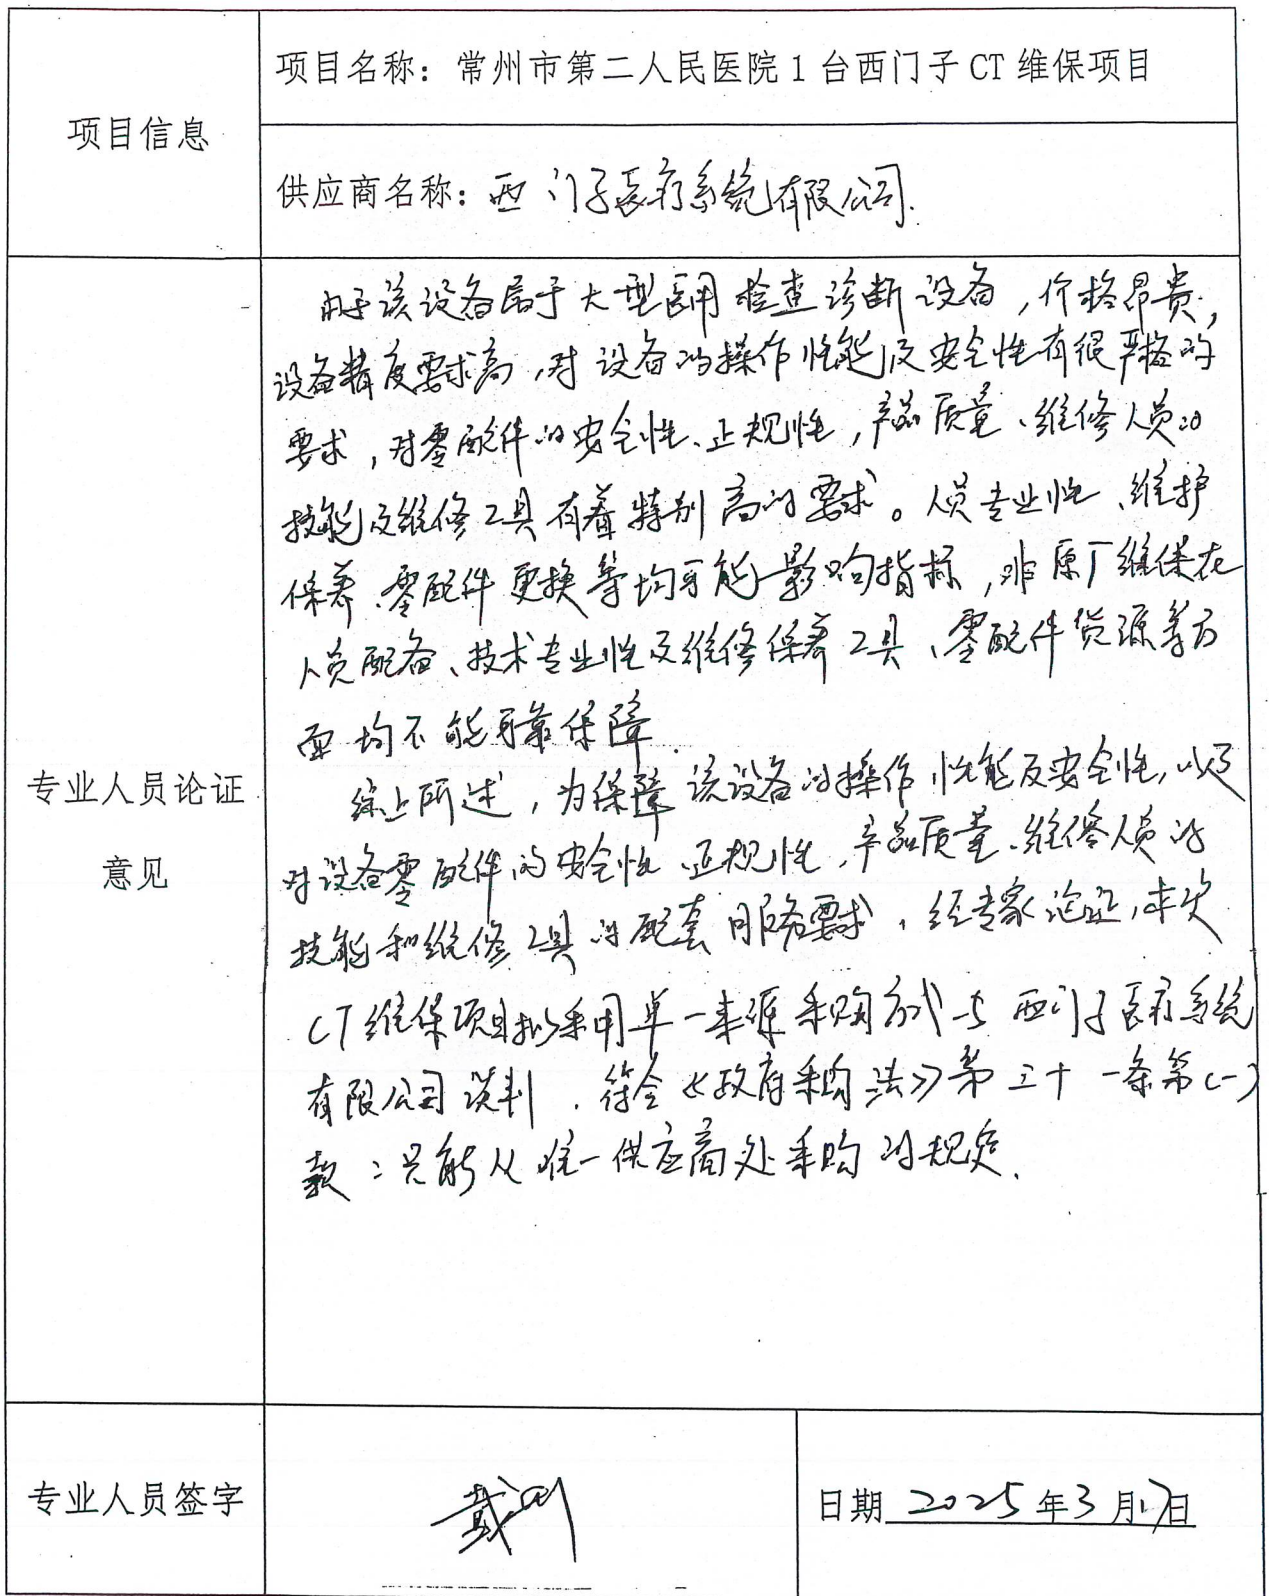 项目信息
项目名称：常州市第二人民医院1台西门子CT维保项目
供应商名称：西门子医疗系统有限公司.
专业人员论证
意见
由于该设备属于大型医用检查诊断设备，价格昂贵，
设备精度要求高，对设备的操作性能及安全性有很严格的
要求，对零配件的安全性、正规性，产品质量、维修人员的
技能及维修工具有着特别高的要求。人员专业性、维护
保养、零配件更换等均可能影响指标，非原厂维保在
人员配备、技术专业性及维修保养工具、零配件货源等方
面均不能可靠保障.
综上所述，为保障该设备的操作性能及安全性，以及
对设备零配件的安全性、正规性，产品质量、维修人员的
技能和维修工具的配套服务要求，经专家论证，本次
CT维保项目拟采用单一来源采购方式与西门子医疗系统
有限公司谈判，符合《政府采购法》第三十一条第(一)
款：只能从唯一供应商处采购的规定.
专业人员签字
日期 2025年3月17日